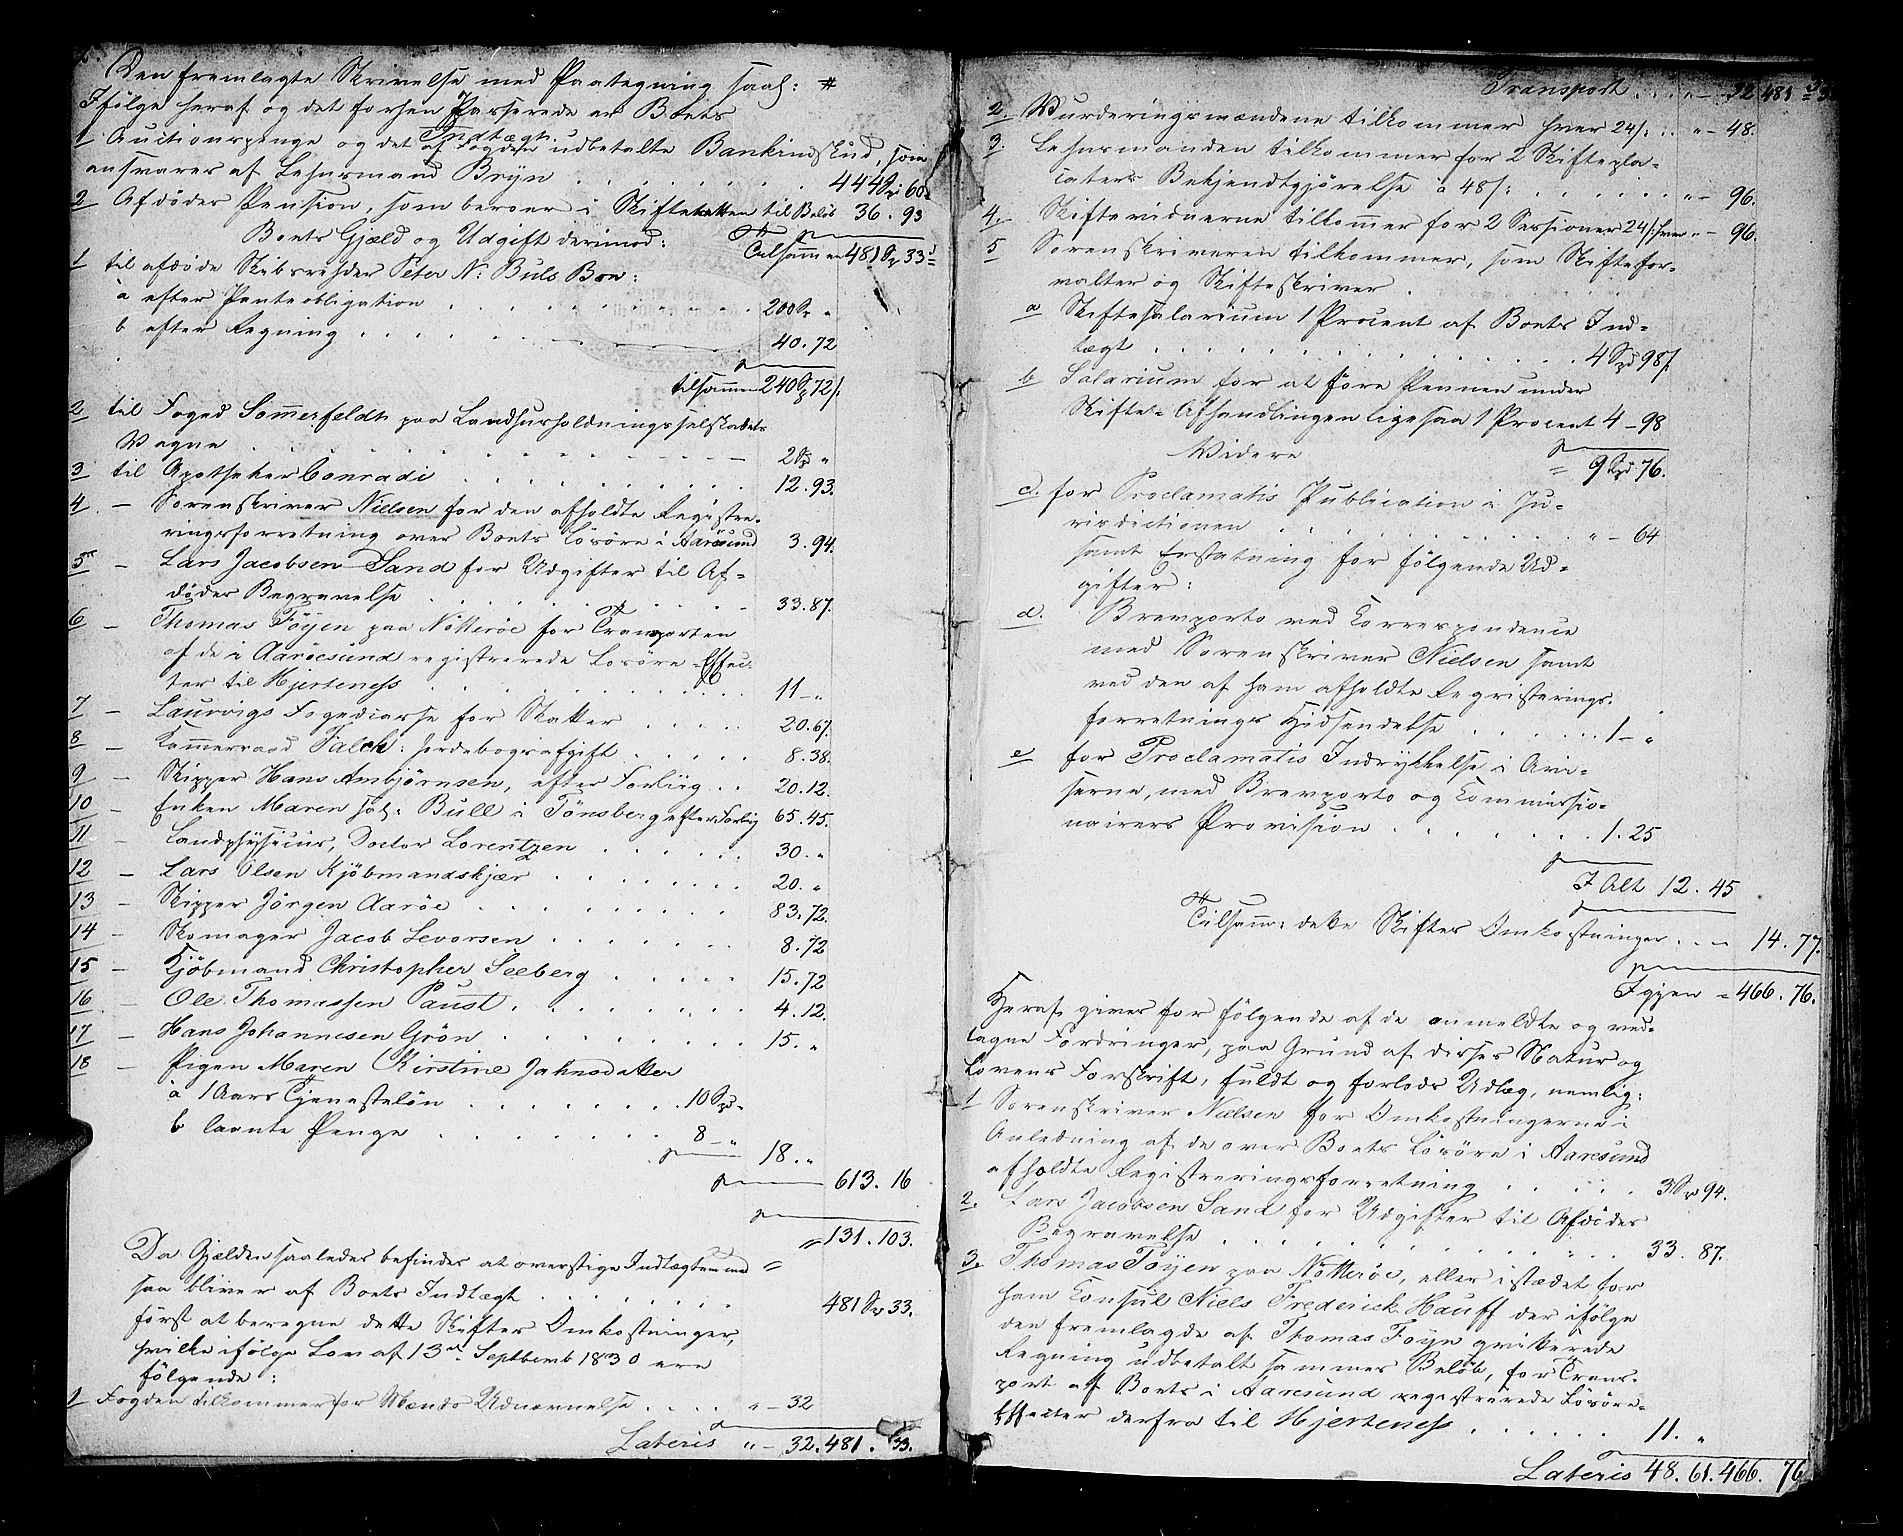 Den fremlagte Skrivelse med Paategning saal: #
Ifölge heraf og det forhen Passerede er Boets
Indtægt:
1 Auctionspenge og det af Fogden udbetalte Bankindskud, som
ansvares af Lehnsmand Bryn . . . . . . . . 444 Spd 60
2 Afdödes Pension, som beroer i Skifteretten til Beløb 36. 93
Tilsammen 481 Spd 33 s
Boets Gjæld og Udgift derimod:
1 til afdöde Skibsrehder Peter N: Buls Boe:
a efter Panteobligation . . . . . . . . 200 Sp "
b efter Regning . . . . . . . . 40. 72
tilsammen 240 Sp 72 s:
2 til Foged Sommerfeldt paa Landhusholdningsselskabets
Vegne . . . . . . . . 2 Sp "
3 til Apotheker Conradi . . . . . . . . 12. 93.
4 – Sorenskriver Nielsen for den afholdte Registre-
ringsforretning over Boets Lösöre i Aaröesund 3. 94.
5 – Lars Jacobsen Sand for Udgifter til Af-
dödes Begravelse . . . . . . . . 33. 87.
6 – Thomas Föyen paa Nötteröe for Transporten
af de i Aaröesund registrerede Losöre-Effec-
ter til Hjertenæss . . . . . . . . 11 – "
7 – Laurvigs Fogedcasse for Skatter . . . . 20. 67.
8 – Kammerraad Falck: Jordebogsafgift . . . . 8. 38.
9 – Skipper Hans Ambjörnsen, efter Forliig . . 20. 12.
10 – Enken Maren sal: Bull i Tönsberg efter Forlig 65. 45.
11 – Landphysicus, Doctor Lorentzen . . . . . . 30. "
12 – Lars Olsen Kjöbmandskjær . . . . . . 20. "
13 – Skipper Jörgen Aaröe . . . . . . 83. 72.
14 – Skomager Jacob Levorsen . . . . . . 8. 72
15 – Kjöbmand Christopher Seeberg . . . . . 15. 72
16 – Ole Thomassen Paust . . . . . . 4. 12.
17 – Hans Johannesen Grön . . . . . . 15. "
18 – Pigen Maren Kirstine Jahnsdatter
a 1 Aars Tjenesteløn . . . . . . 10 Spd "
b laante Penge . . . . . . 8 – "
18. "
613. 16
" 131. 103.
Da Gjælden saaledes befindes at overstige Indtægten med =
saa bliver af Boets Indtægt . . . . . . 481 Sp 33.
först at beregne dette Skiftes Omkostninger,
hvilke ifölge Lov af 13de Septbemb 1830 ere
följende:
1 Fogden tilkommer for Mænds Udnævnelse . . . . " – 32
Lateris " – 32. 481. 33.
Transport . . . " – 32 481 33
2. Vurderingsmændene tilkommer hver 24 s: . . " – 48.
3. Lehnsmanden tilkommer for 2 Skiftepla-
caters Bekjendtgjörelse à 48 s: . . . . . . " – 96.
4. Skiftevidnerne tilkommer for 2 Sessioner 24 s: hver " – 96.
5 Sorenskriveren tilkommer, som Skiftefor-
valter og Skifteskriver .
a Skiftesalarium 1 Procent af Boets Ind-
tægt . . . . . . . . 4 Spd 98 s.
b Salarium for at före Pennen under
Skifte-Afhandlingen ligesaa 1 Procent 4 – 98
= 9 Spd 76.
Videre
c. for Proclamatis Publication i Ju-
risdictionen . . . . . . . . " – 64
samt Erstatning for följende Ud-
gifter:
d. Brevporto ved Correspondence
med Sorenskriver Nielsen samt
ved den af ham afholdte Registerings-
forretnings Hidsendelse . . . . . . 1 – "
e for Proclamatis Indrykkelse i Avi-
serne, med Brevporto og Commissio-
nairers Provision . . . . . . 1. 25
I Alt 12. 45
Tilsamm: dette Skiftes Omkostninger . . – 14. 77.
Igjen = 466. 76.
Heraf gives for fölgende af de anmeldte og ved-
tagne Fordringer, paa Grund af disses Natur og
Lovens Forskrift, fuldt og forlods Udlæg, nemlig:
1 Sorenskriver Nielsen for Omkostningerne i
Anledning af de over Boets Lösöre i Aaresund
afholdte Registreringsforretning . . . . . 3 Sp 94.
2. Lars Jacobsen Sand for Udgifter til Afdödes
Begravelse . . . . . . . . 33. 87.
3. Thomas Föyen paa Nötteröe, eller istædet for
ham Consul Niels Frederick Hauff der ifölge
den fremlagde af Thomas Föyn qvitterede
Regning udbetalt sammes Belöb, for Trans-
port af Boets i Aaresund registrerede Lösöre-
Effecter derfra til Hjertenæss . . . . . . 11. "
Lateris 48. 61. 466. 76